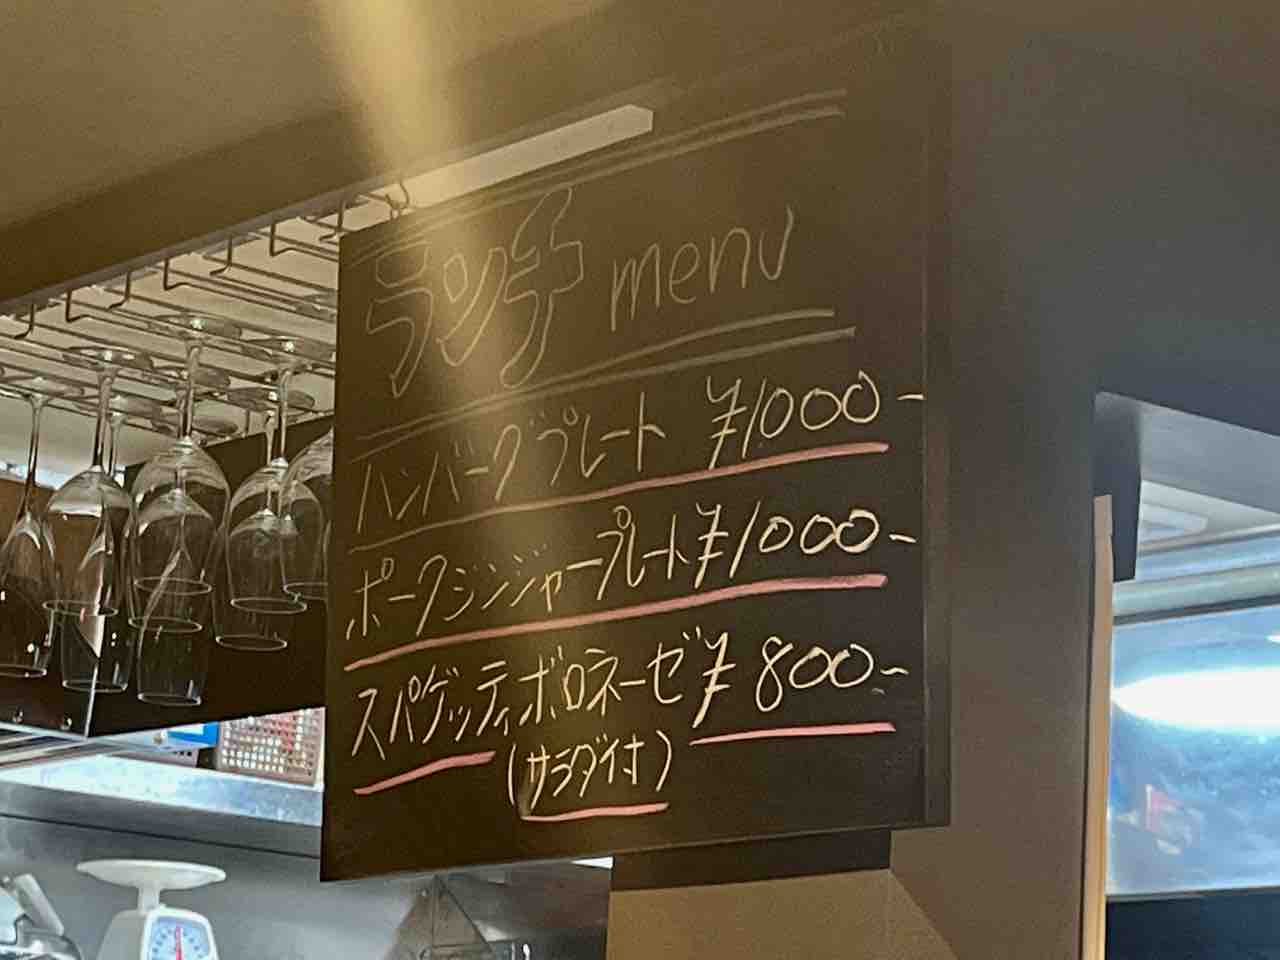 ランチ menu
ハンバーグプレート ¥1000-
ポークジンジャープレート ¥1000-
スパゲッティボロネーゼ ¥800-
(サラダ付)